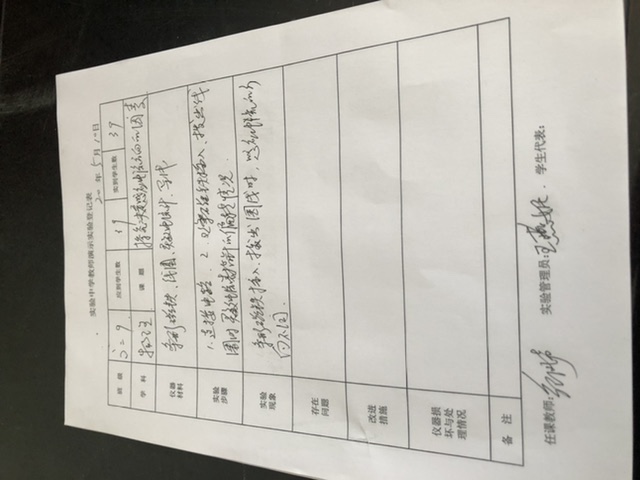 实验中学教师演示实验登记表
年5月10日
班级 高二9 应到学生数 39 实到学生数 39
学科 物理 课题 探究决定感应电流方向的因素
仪器材料 条形磁铁、线圈、灵敏电流计、导线
实验步骤 1.连接电路。2.观察磁铁插入、拔出线
圈时灵敏电流表指针的偏转情况。
实验现象 条形磁铁插入、拔出圈时,
向不同。
存在问题
改进措施
仪器损坏与处理情况
备注
任课教师: 实验管理员: 学生代表: